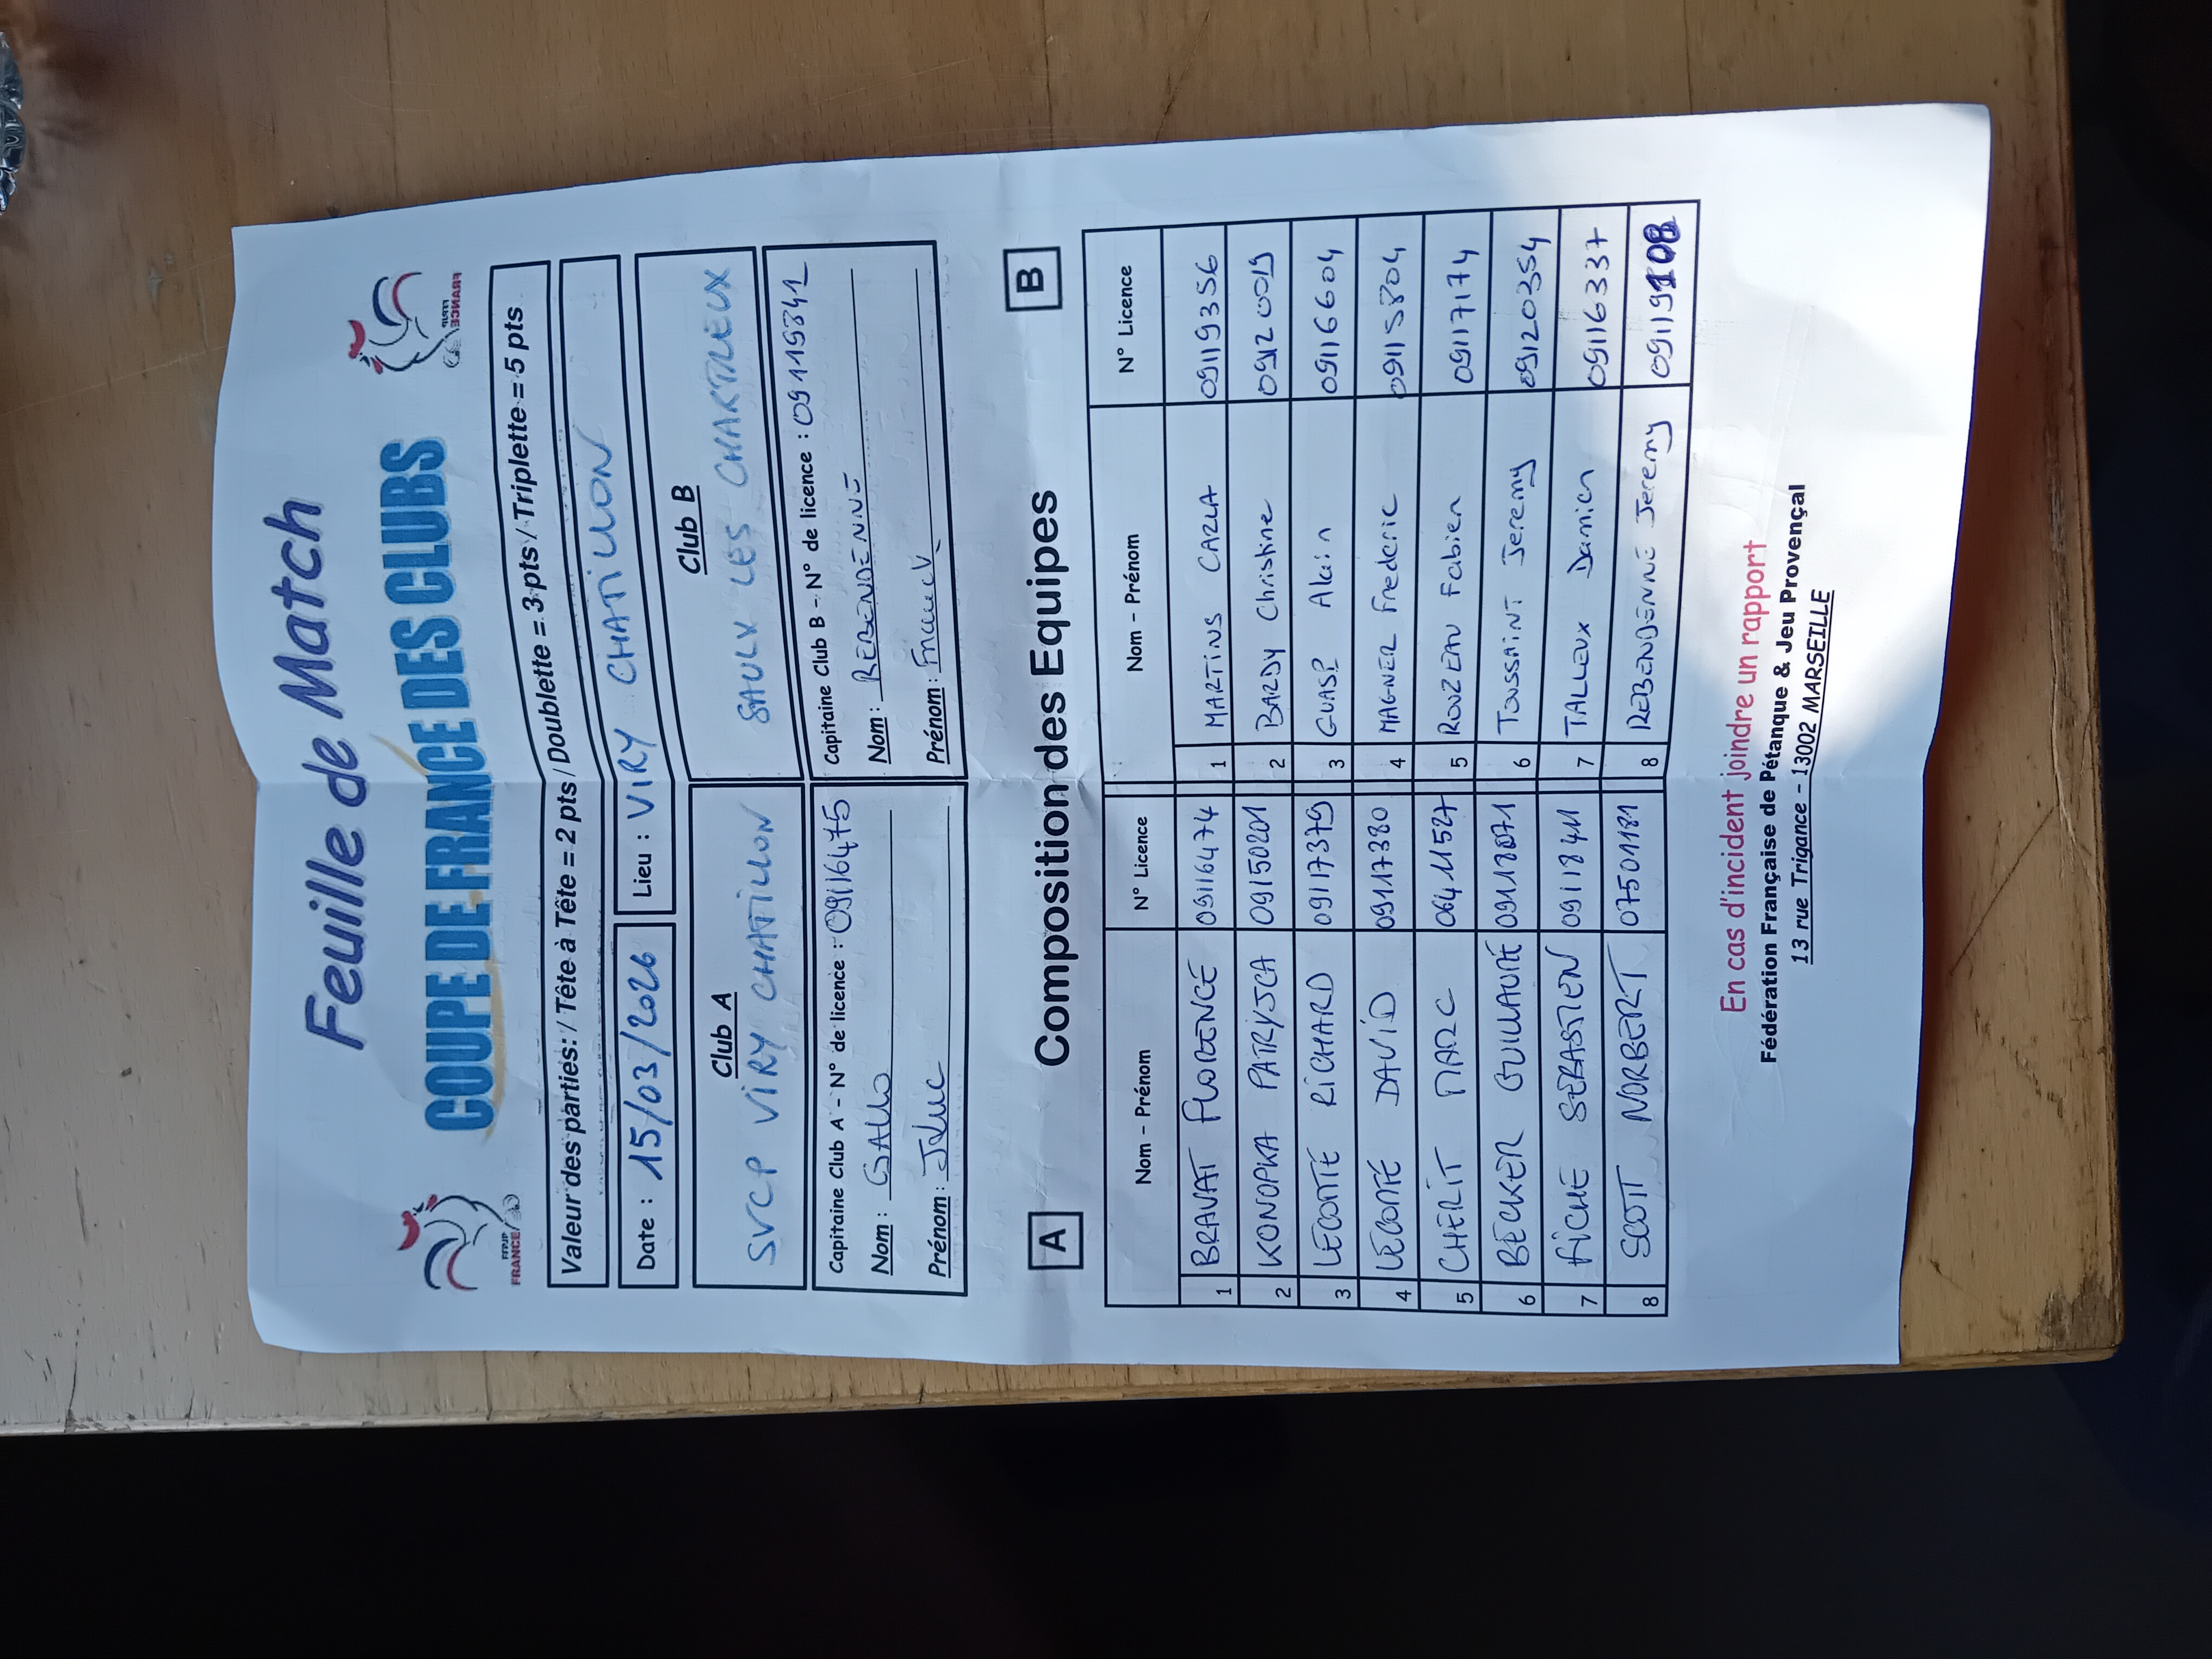 Feuille de Match
COUPE DE FRANCE DES CLUBS
FFPJP
FRANCE
FFPJP
FRANCE
Valeur des parties: / Tête à Tête = 2 pts / Doublette = 3 pts / Triplette = 5 pts
Date : 15/03/2026 Lieu : VIRY CHATILLON
Club A
SVCP VIRY CHATILLON
Club B
SAULX LES CHARTREUX
Capitaine Club A - N° de licence : 09116475
Nom : GALLO
Prénom : JLuc
Capitaine Club B - N° de licence : 09119841
Nom : REBENDENNE
Prénom : Franck
A Composition des Equipes B
Nom - Prénom N° Licence Nom - Prénom N° Licence
1 BRAVAT FLORENCE 09116474 1 MARTINS CARLA 09119356
2 KONOPKA PATRYJCA 09150201 2 BARDY Christine 09120019
3 LECOMTE RICHARD 09117379 3 GUASP Alain 09116604
4 LECOMTE DAVID 09117380 4 MAGNIER Frederic 09115804
5 CHERIT MARC 06411527 5 ROUZEAU Fabien 09117174
6 BECKER GUILLAUME 6 TOUSSAINT Jeremy 09120354
7 FICHE SEBASTIEN 09118411 7 TALLEUX Damien 09116337
8 SCOTT NORBERT 07501181 8 REBENDENNE Jeremy
En cas d'incident joindre un rapport
Fédération Française de Pétanque & Jeu Provençal
13 rue Trigance - 13002 MARSEILLE